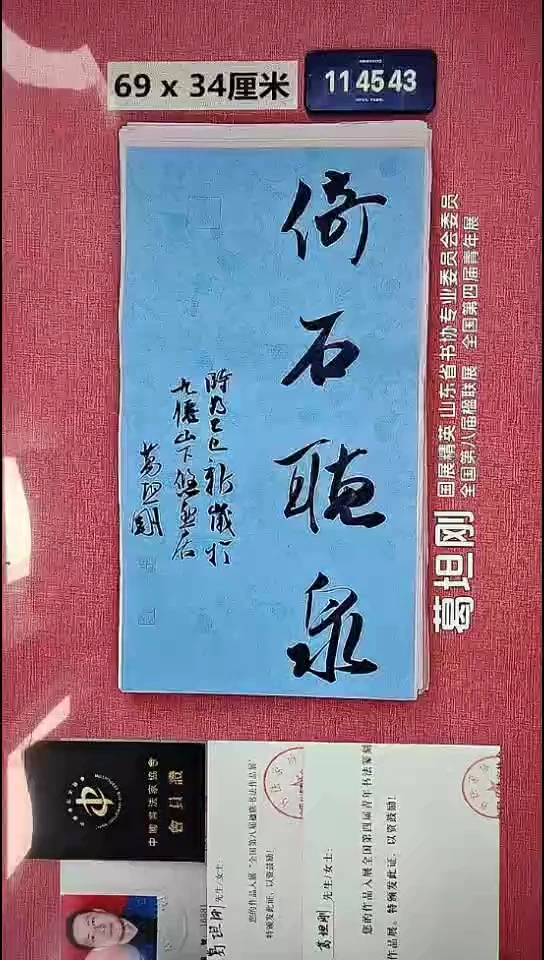 69 x 34厘米
11 45 43
倚石聴泉
時為乙巳新歲於
九僊山下悠然居
葛坦剛
国展精英 山东省书协专业委员会委员
全国第八届楹联展 全国第四届青年展
葛坦刚
中國書法家協會
會員證
16891
葛坦刚 先生/女士:
您的作品入展“全国第八届楹联书法作品展”
特颁发此证，以资鼓励!
葛坦刚 先生/女士:
您的作品入展全国第四届青年书法篆刻
作品展。特颁发此证，以资鼓励!